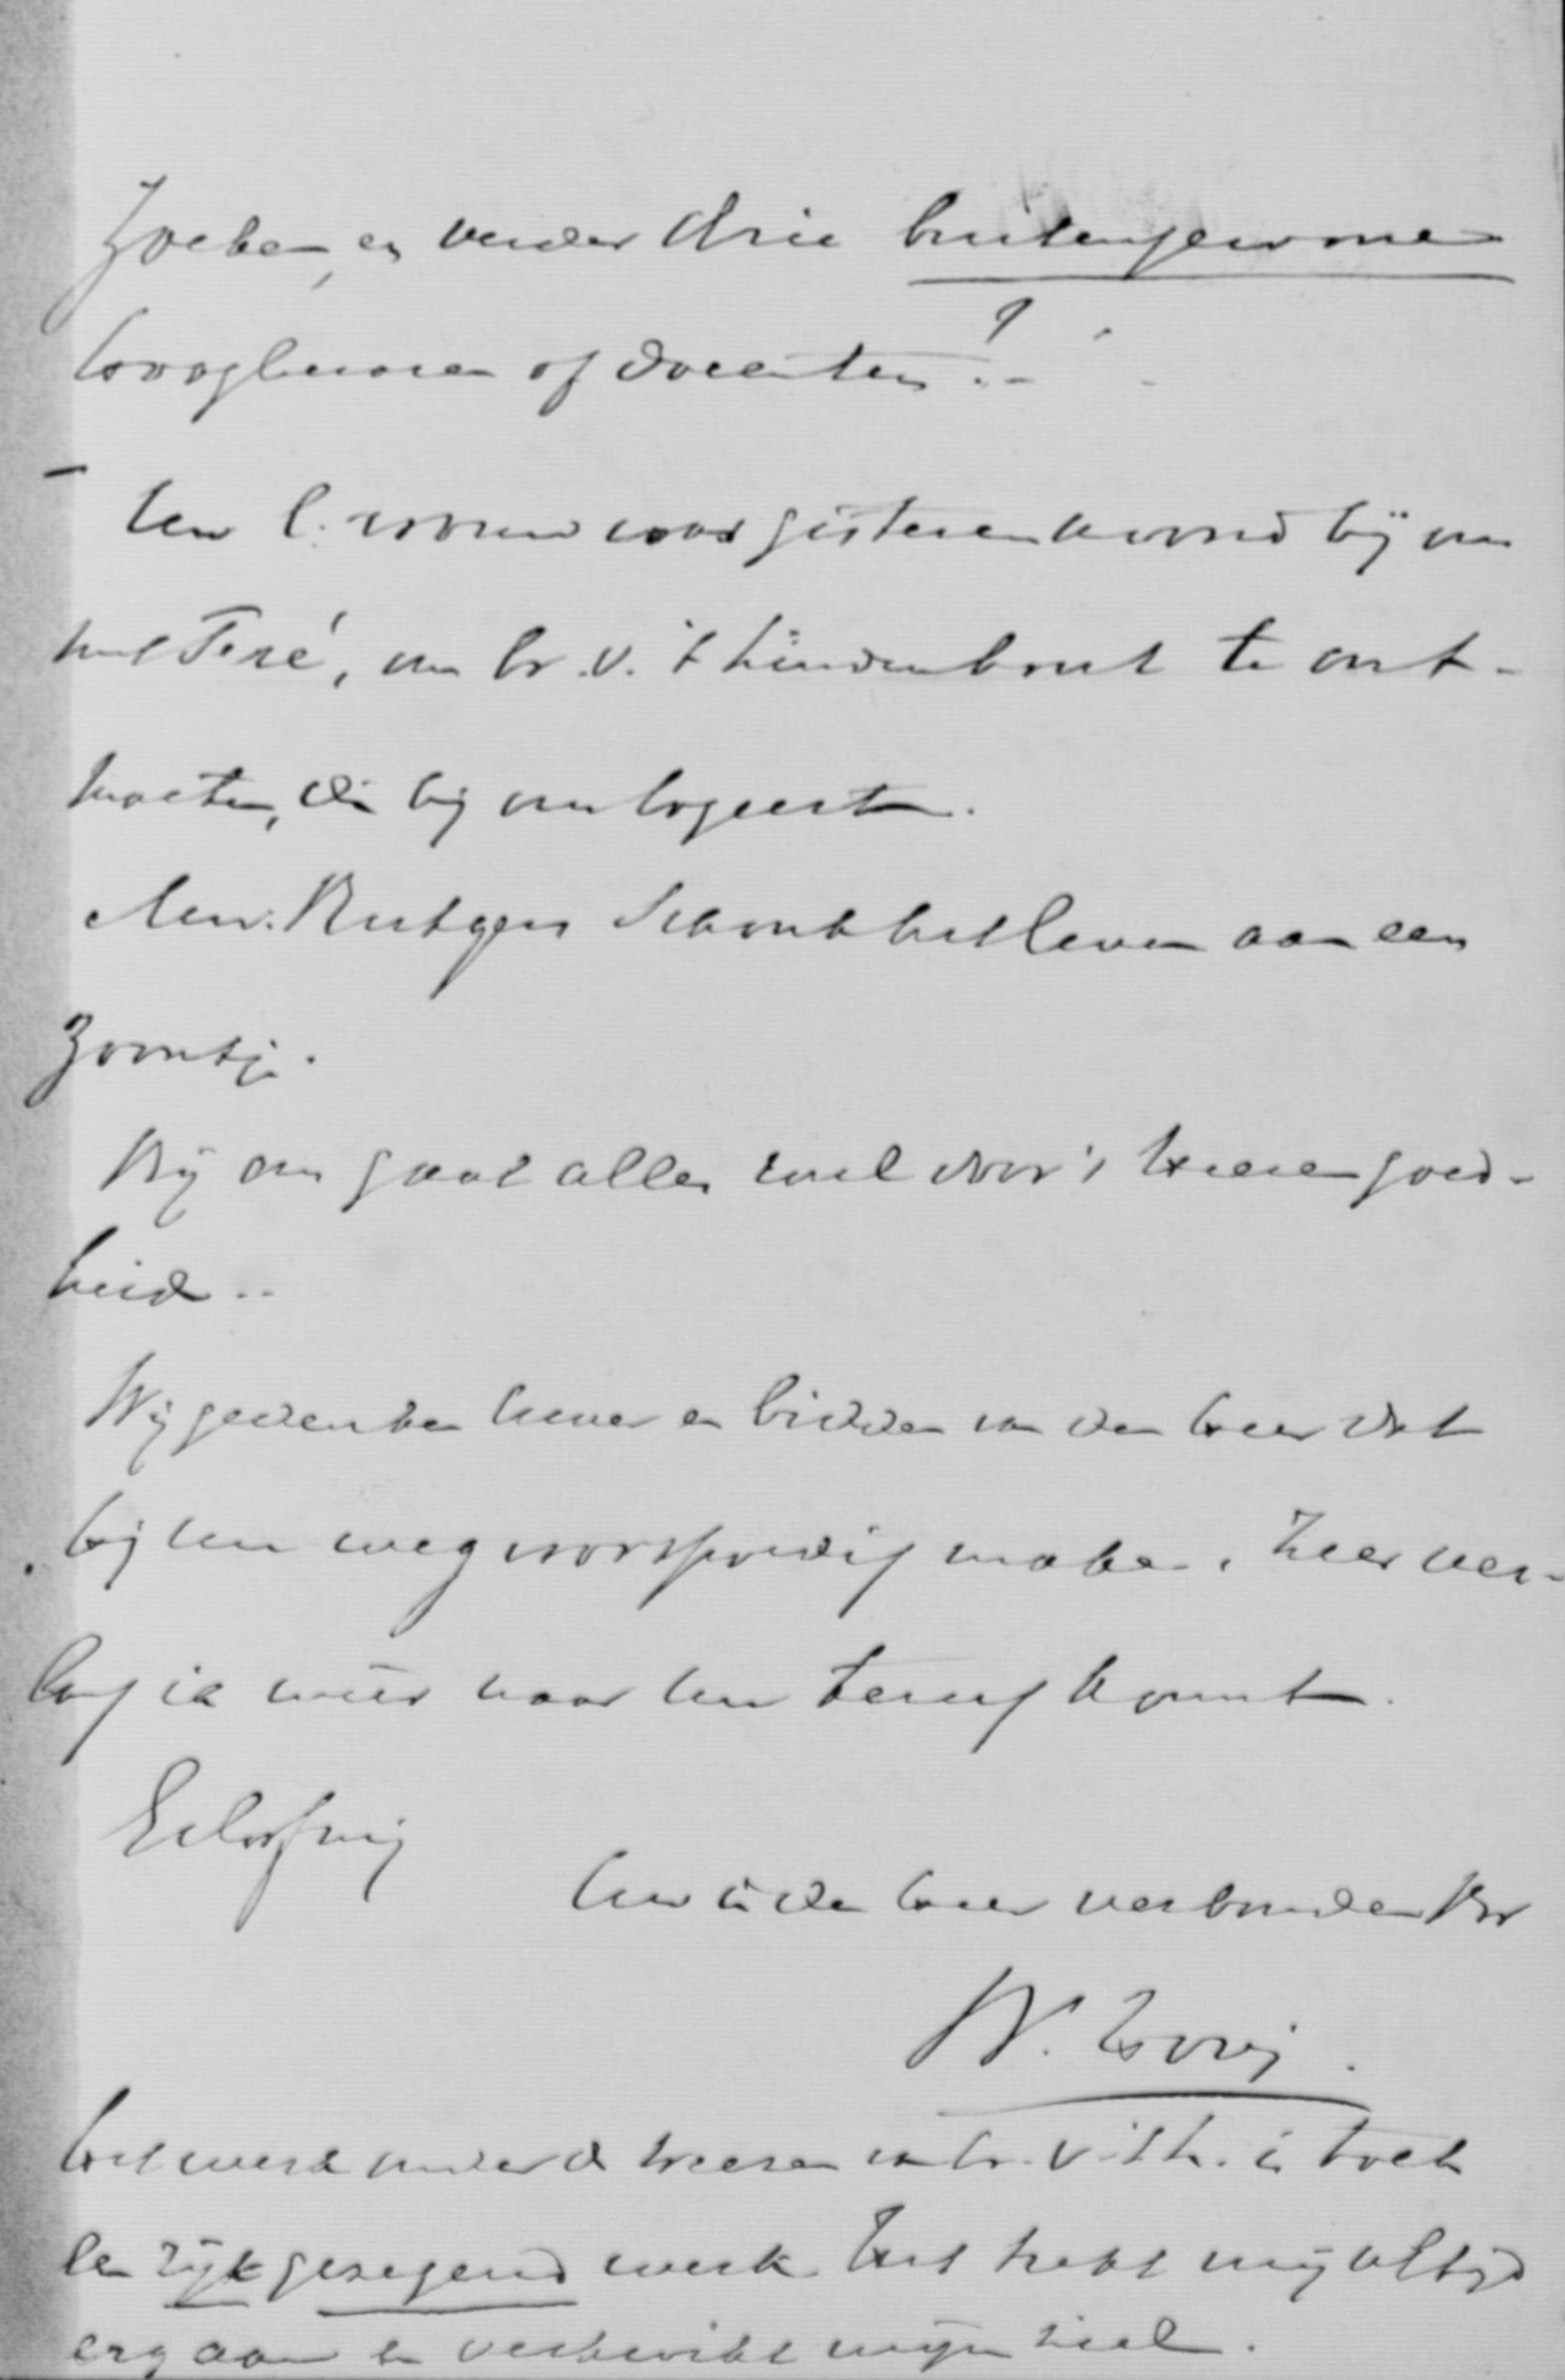 zoeken, en verder drie buitengewone
hoogleeraren of docenten?
Uw l. vrouw was gisteren avond bij ons
met Fina, om br. v. 't Lindenhout te ont-
moeten, die bij ons logeerde.
Mevr. Rutgers schonk het leven aan een
zoontje.
Bij ons gaat alles wel door 's Heeren goed-
heid..
Wij gedenken Uwer en bidden van den Heer dat
hij Uw weg voorspoedig make. Zeer ver-
lang ik weer naar Uw terugkomst.
Geloof mij
Uw in den Heer verbonden Br
W. Hovy.
Het werk onder de weezen van br. v. 't L. is toch
een rijk gezegend werk. Het trekt mij altijd
erg aan en verkwikt mijn ziel.